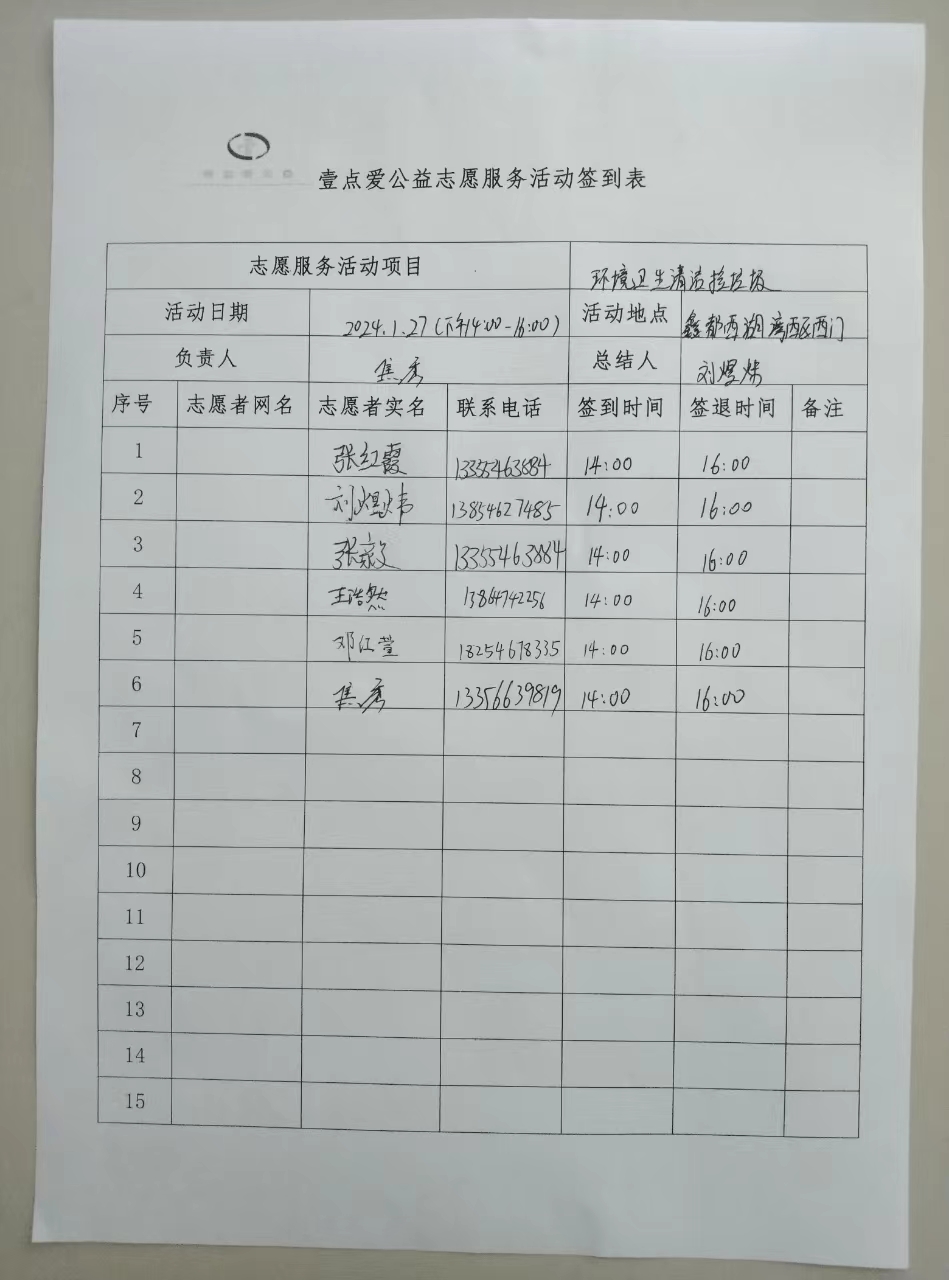 壹点爱公益志愿服务活动签到表
志愿服务活动项目 环境卫生清洁捡垃圾
活动日期 2024.1.27(下午14:00-16:00) 活动地点 鑫都西湖湾西区西门
负责人 焦秀 总结人 刘煜炜
序号 志愿者网名 志愿者实名 联系电话 签到时间 签退时间 备注
1 张红霞 13355463884 14:00 16:00
2 刘煜炜 13854627485 14:00 16:00
3 张毅 13355463884 14:00 16:00
4 王浩然 13864742256 14:00 16:00
5 邓江萱 18254678335 14:00 16:00
6 焦秀 13356639819 14:00 16:00
7
8
9
10
11
12
13
14
15